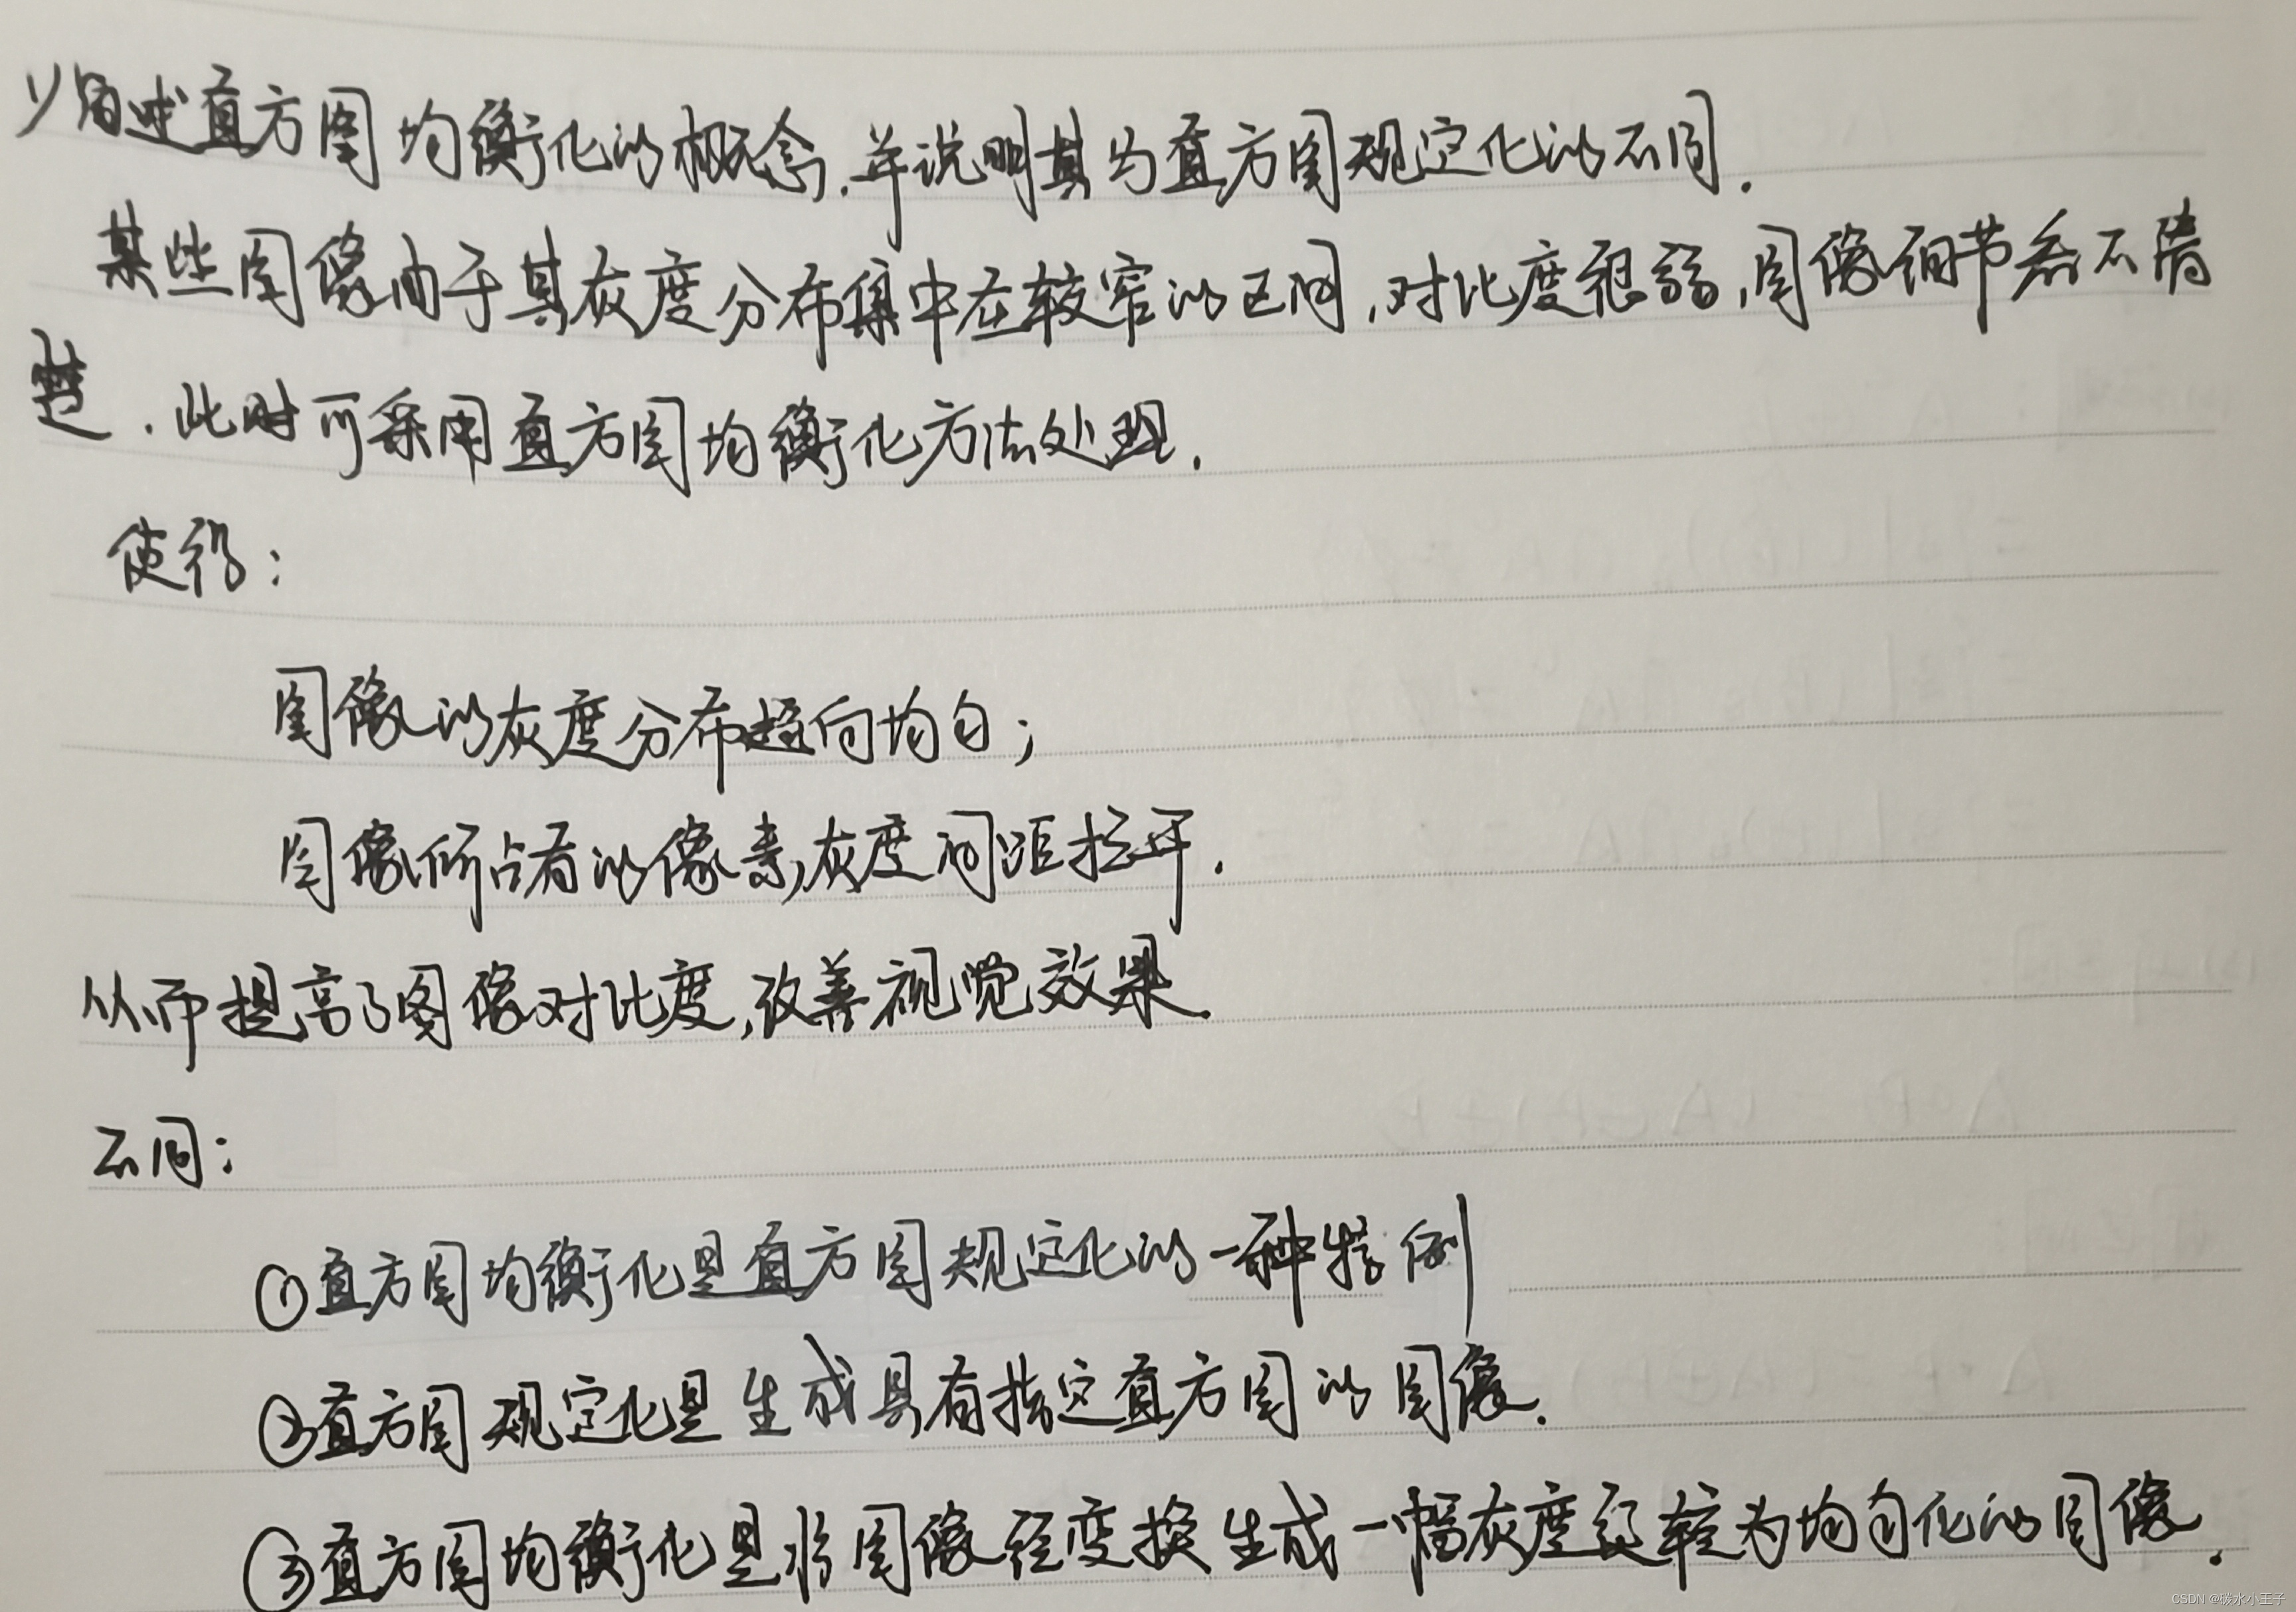 1/简述直方图均衡化的概念,并说明其与直方图规定化的不同.
某些图像由于其灰度分布集中在较窄的区间,对比度很弱,图像细节看不清
楚.此时可采用直方图均衡化方法处理.
使得:
图像的灰度分布趋向均匀;
图像所占有的像素,灰度间距拉开.
从而提高了图像对比度,改善视觉效果.
不同:
①直方图均衡化是直方图规定化的一种特例
②直方图规定化是生成具有指定直方图的图像.
③直方图均衡化是将图像经变换生成一幅灰度级较为均匀化的图像.
CSDN @碳水小王子